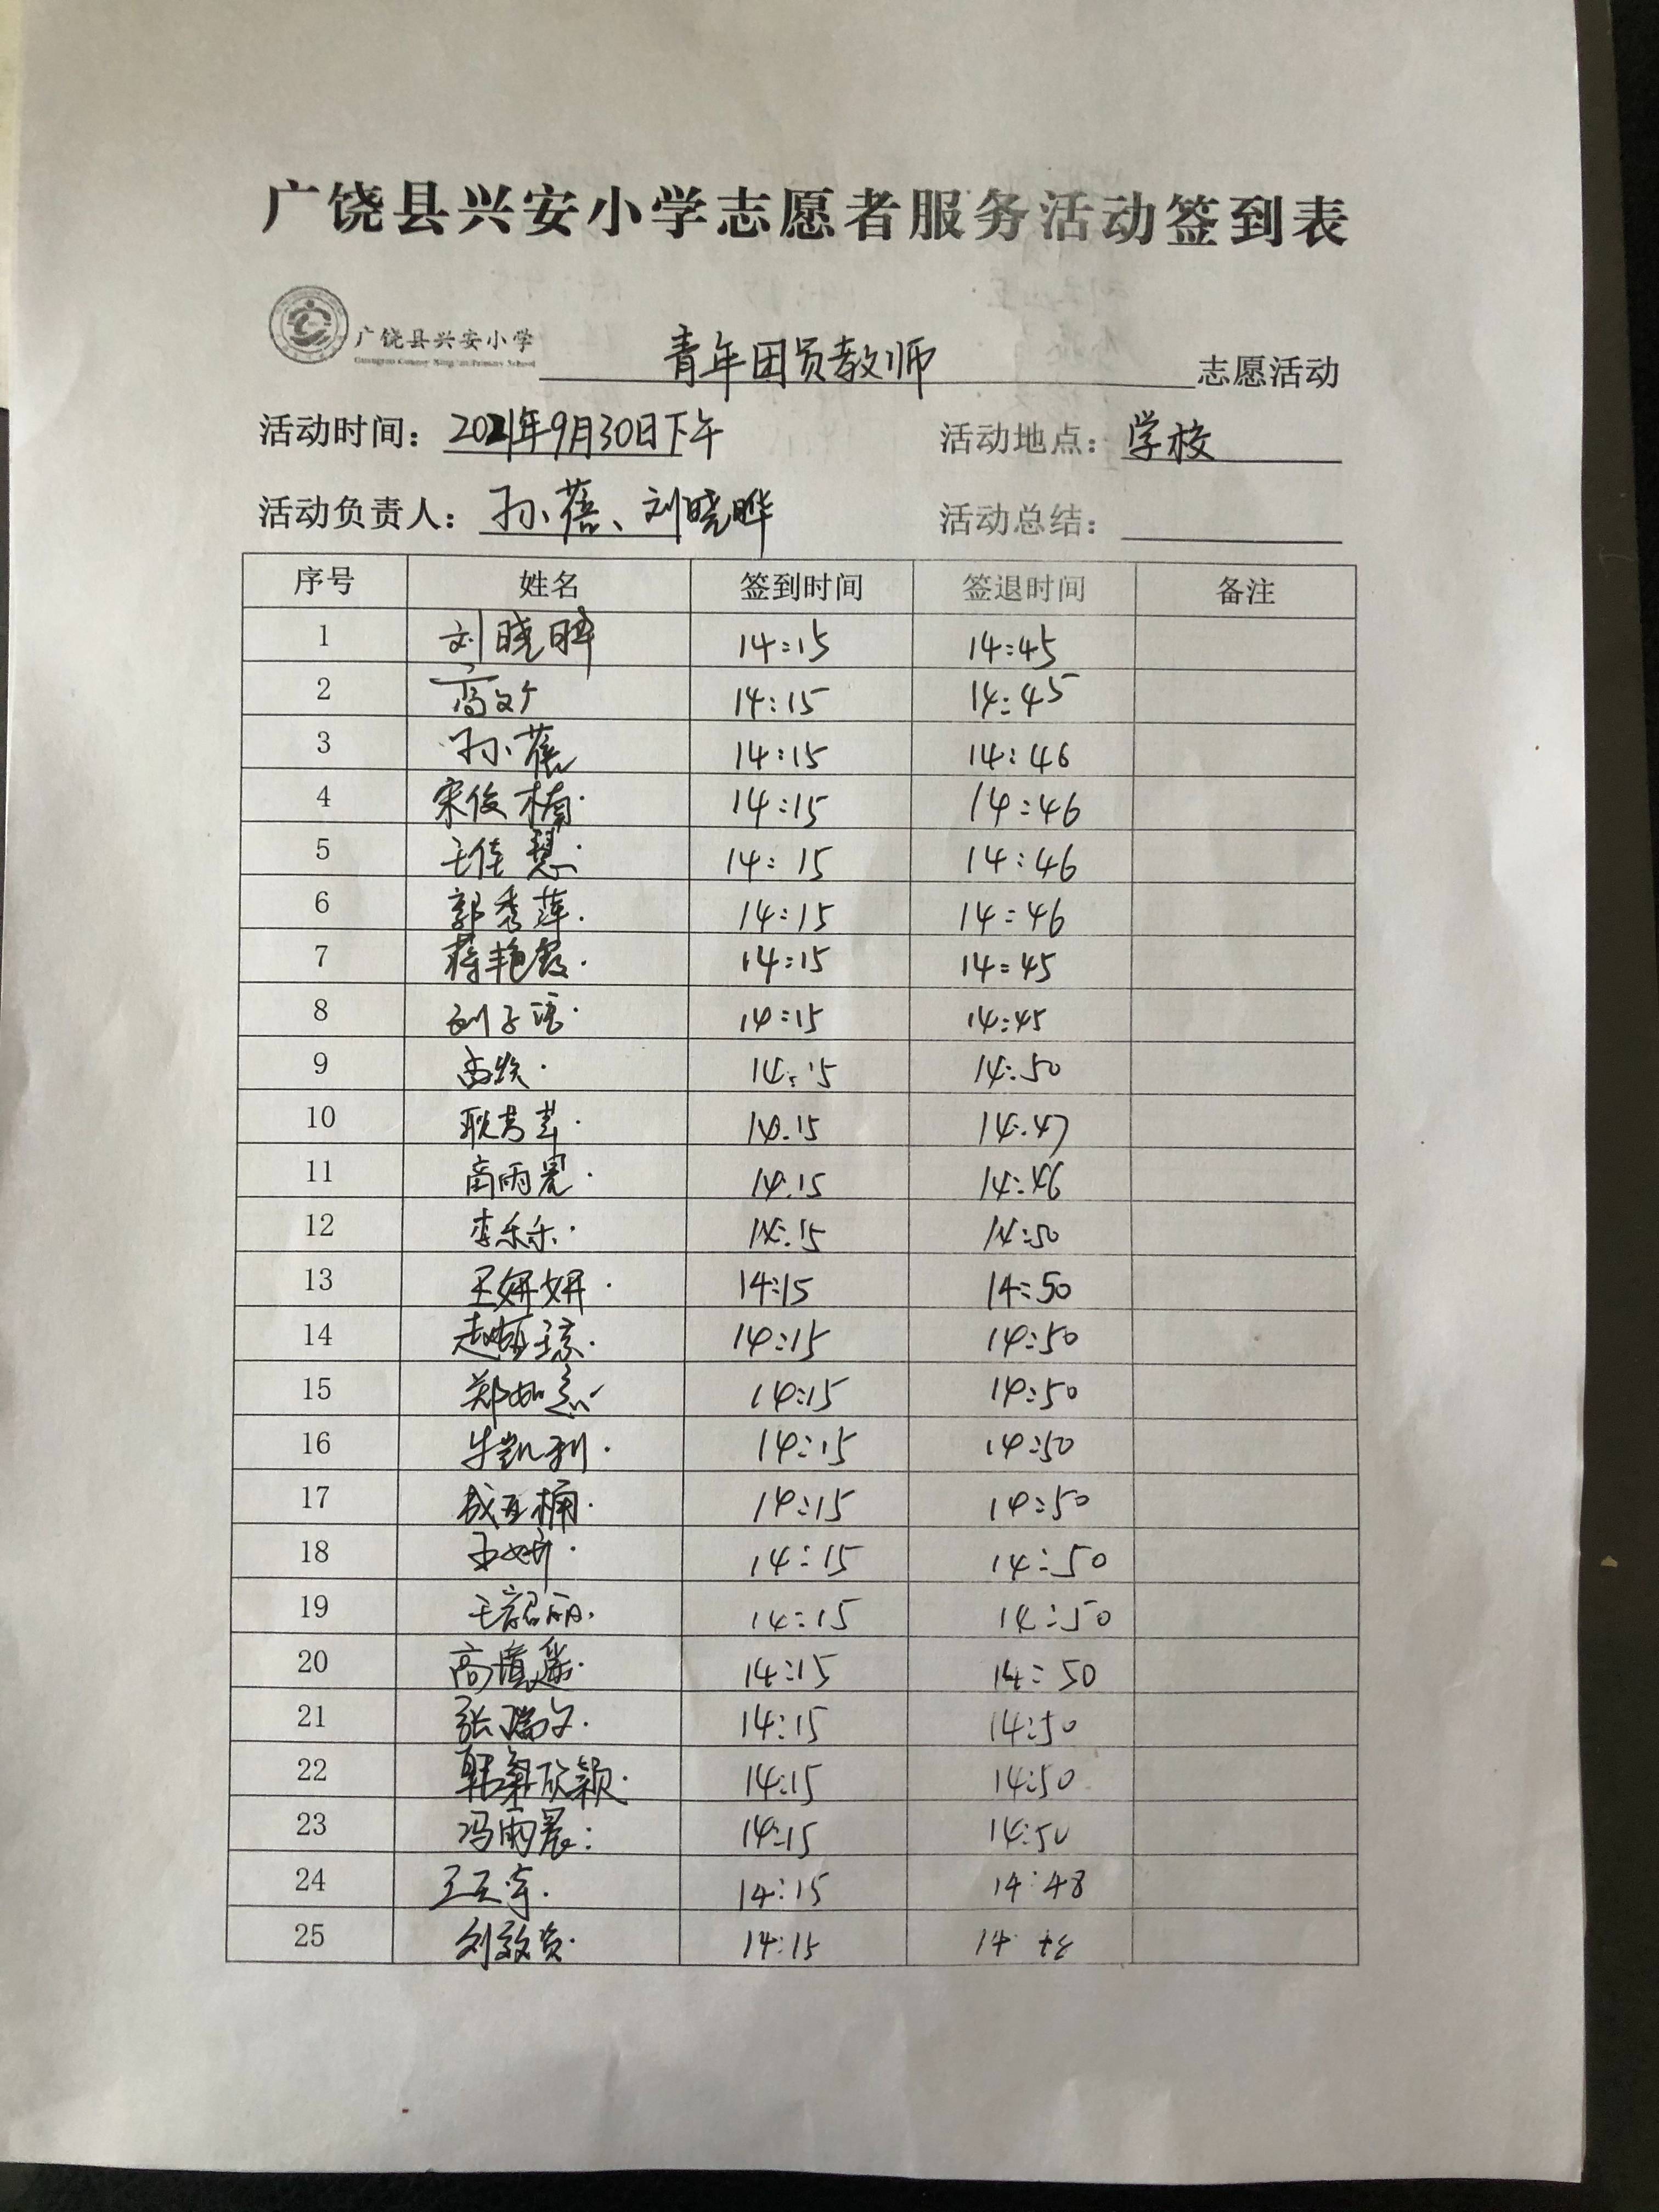 广饶县兴安小学志愿者服务活动签到表
广饶县兴安小学 青年团员教师 志愿活动
Guangrao County Xing'an Primary School
活动时间：2021年9月30日下午 活动地点：学校
活动负责人：孙蓓、刘晓晔 活动总结：
序号 姓名 签到时间 签退时间 备注
1 刘晓晔 14:15 14:45
2 14:15 14:45
3 孙蓓 14:15 14:46
4 宋俊楠 14:15 14:46
5 王佳慧 14:15 14:46
6 郭秀萍 14:15 14:46
7 蒋艳霞 14:15 14:45
8 刘子语 14:15 14:45
9 14:15 14:50
10 14:15 14:47
11 14:15 14:46
12 李乐乐 14:15 14:50
13 王妍妍 14:15 14:50
14 14:15 14:50
15 郑如意 14:15 14:50
16 牛凯利 14:15 14:50
17 14:15 14:50
18 王妍 14:15 14:50
19 王韶丽 14:15 14:50
20 14:15 14:50
21 张瑞文 14:15 14:50
22 14:15 14:50
23 冯雨晨 14:15 14:50
24 14:15 14:48
25 14:15 14:48